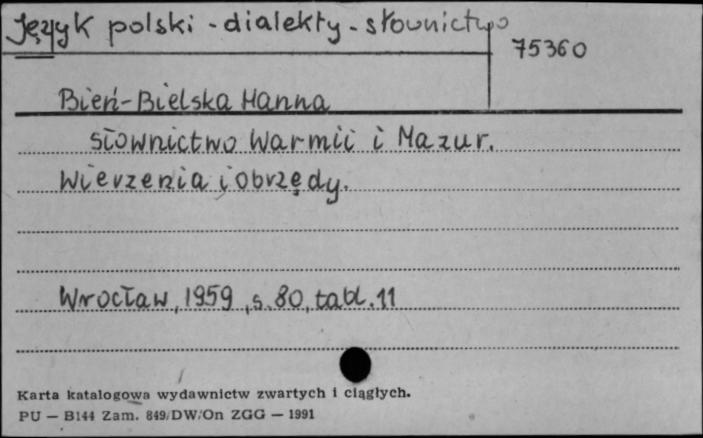 Język polski - dialekty - słownictwo
75360
Bień-Bielska Hanna
Słownictwo Warmii i Mazur.
Wierzenia i obrzędy.
Wrocław, 1959, s. 80, tabl. 11
Karta katalogowa wydawnictw zwartych i ciągłych.
PU — B144 Zam. 849/DW/On ZGG — 1991